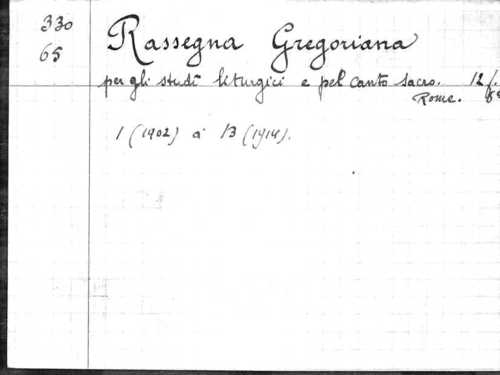 330
65
Rassegna Gregoriana
per gli studi liturgici e pel canto sacro. 12 f.
Rome.
1 (1902) à 13 (1914).